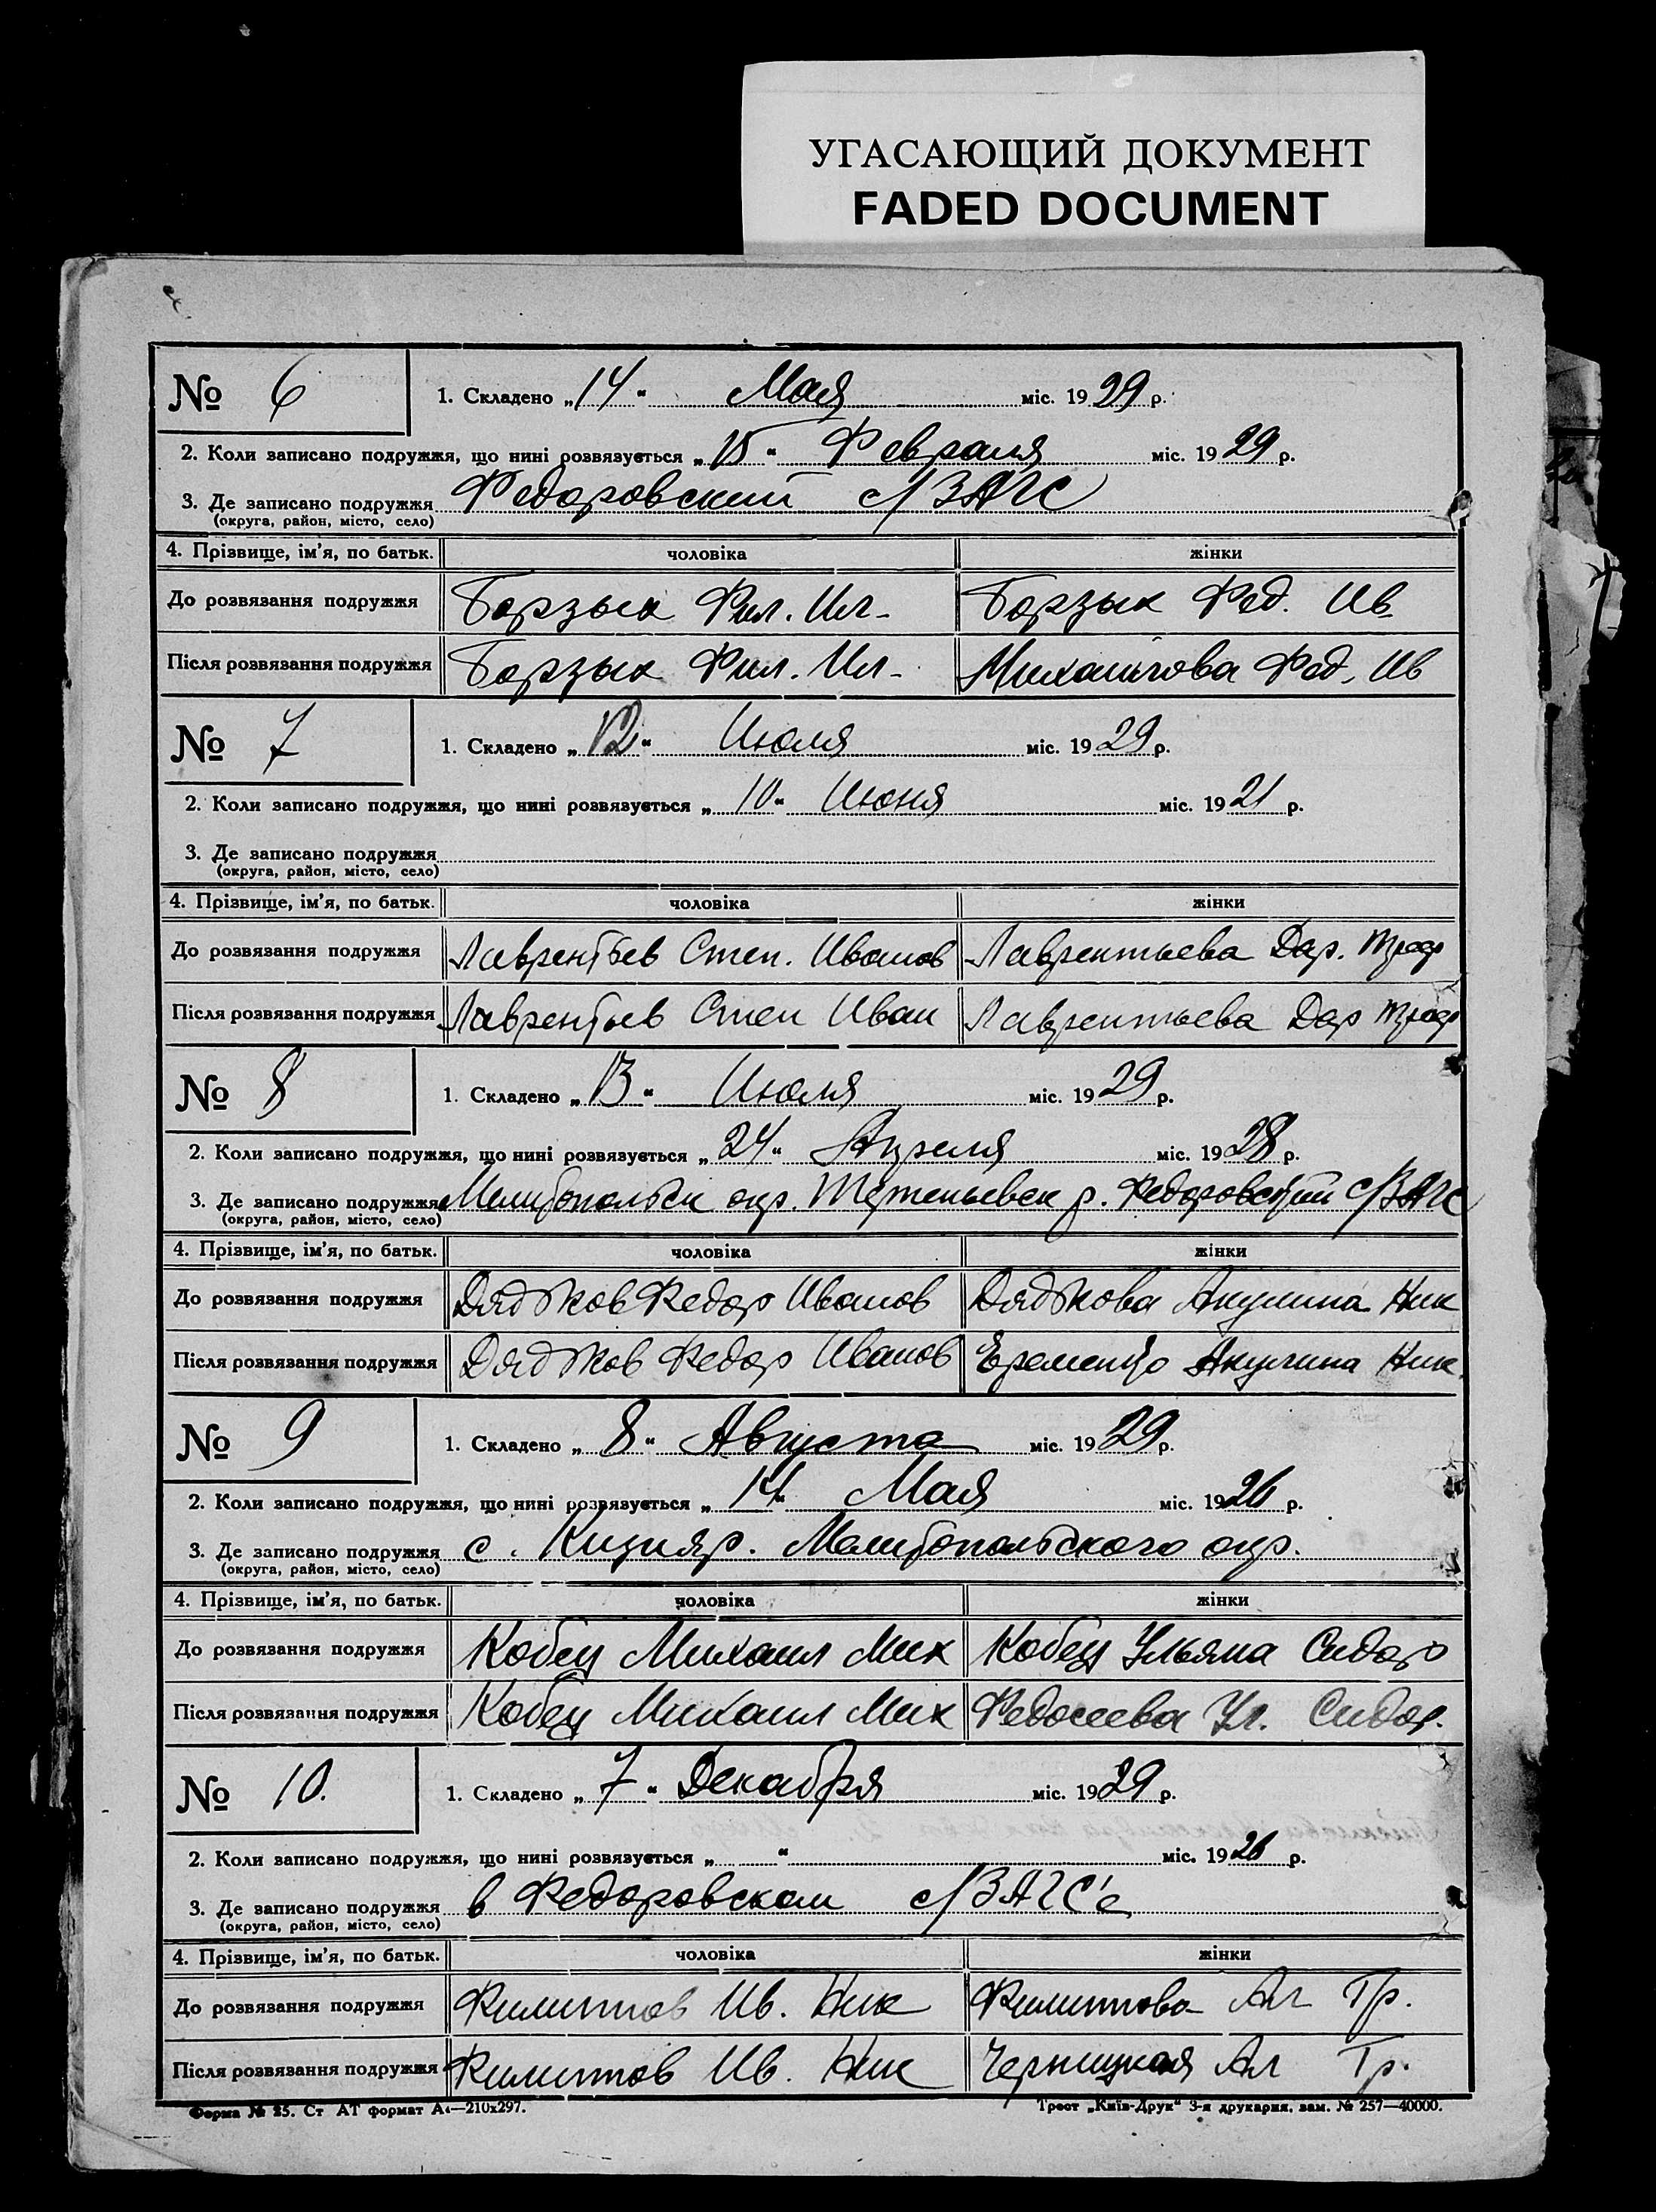 УГАСАЮЩИЙ ДОКУМЕНТ
FADED DOCUMENT
№ 6 1. Складено „14“ Мая міс. 1929 р.
2. Коли записано подружжя, що нині розвязується „15“ Февраля міс. 1929 р.
3. Де записано подружжя Федоровский с/ЗАГС
(округа, район, місто, село)
4. Прізвище, ім'я, по батьк. чоловіка жінки
До розвязання подружжя Борзых Фил. Ил- Борзых Фед. Ив
Після розвязання подружжя Борзых Фил. Ил- Михайлова Фед. Ив
№ 7 1. Складено „12“ Июля міс. 1929 р.
2. Коли записано подружжя, що нині розвязується „10“ Июня міс. 1921 р.
3. Де записано подружжя
(округа, район, місто, село)
4. Прізвище, ім'я, по батьк. чоловіка жінки
До розвязання подружжя Лаврентьев Степ. Иванов Лаврентьева Дар.
Після розвязання подружжя Лаврентьев Степ Иван Лаврентьева Дар
№ 8 1. Складено „13“ Июля міс. 1929 р.
2. Коли записано подружжя, що нині розвязується „24“ Апреля міс. 1928 р.
3. Де записано подружжя Мелитопольск окр. р. Федоровский с/ЗАГС
(округа, район, місто, село)
4. Прізвище, ім'я, по батьк. чоловіка жінки
До розвязання подружжя Дядьков Федор Иванов Дядькова Акулина Ник
Після розвязання подружжя Дядьков Федор Иванов Еременко Акулина Ник.
№ 9 1. Складено „8“ Августа міс. 1929 р.
2. Коли записано подружжя, що нині розвязується „14“ Мая міс. 1926 р.
3. Де записано подружжя с. Кизияр. Мелитопольского окр.
(округа, район, місто, село)
4. Прізвище, ім'я, по батьк. чоловіка жінки
До розвязання подружжя Кобец Михаил Мих Кобец Ульяна Сидор
Після розвязання подружжя Кобец Михаил Мих Федосеева Ул. Сидор.
№ 10. 1. Складено „7“ Декабря міс. 1929 р.
2. Коли записано подружжя, що нині розвязується „ “ міс. 1926 р.
3. Де записано подружжя в Федоровском с/ЗАГС'е
(округа, район, місто, село)
4. Прізвище, ім'я, по батьк. чоловіка жінки
До розвязання подружжя Филиппов Ив. Ник Филиппова Ал Гр.
Після розвязання подружжя Филиппов Ив. Ник Черницкая Ал Гр.
Форма № 25. Ст АТ формат А4—210х297. Трест „Київ-Друк“ 3-я друкарня. зам. № 257—40000.